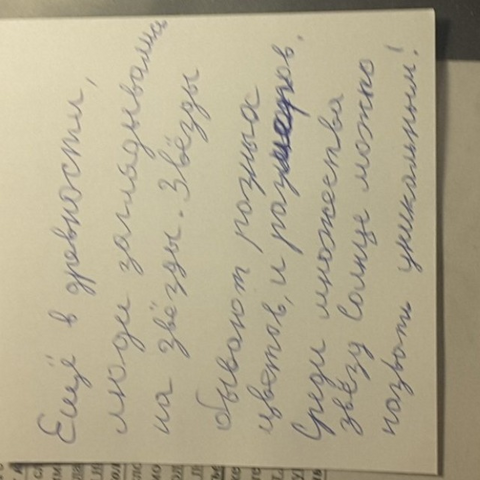 Ещё в древности,
люди заглядывались
на звёзды. Звёзды
бывают разных
цветов, и размеров.
Среди множества
звёзд Солнце можно
назвать уникальным!